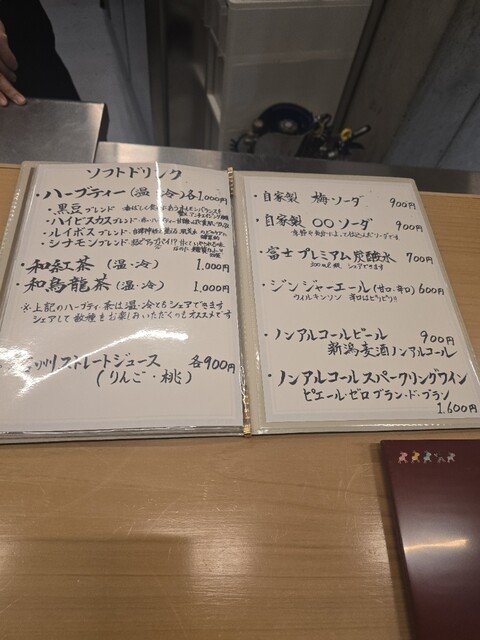 ソフトドリンク
・ハーブティー (温・冷)各1,000円
・黒豆ブレンド
・ハイビスカスブレンド
・ルイボスブレンド
・シナモンブレンド
・和紅茶 (温・冷) 1,000円
・和烏龍茶 (温・冷) 1,000円
※上記のハーブティ、茶は温・冷ともシェアできます
シェアして数種をお楽しみいただくのもオススメです
州ストレートジュース 各900円
(りんご・桃)
・自家製 梅ソーダ 900円
・自家製 〇〇ソーダ 900円
・富士プレミアム炭酸水 700円
シェアできます
・ジンジャーエール(甘口・辛口) 600円
ウィルキンソン 辛口はピリピリ!!
・ノンアルコールビール 900円
新潟麦酒ノンアルコール
・ノンアルコールスパークリングワイン
ピエール・ゼロ ブラン・ド・ブラン
1,600円